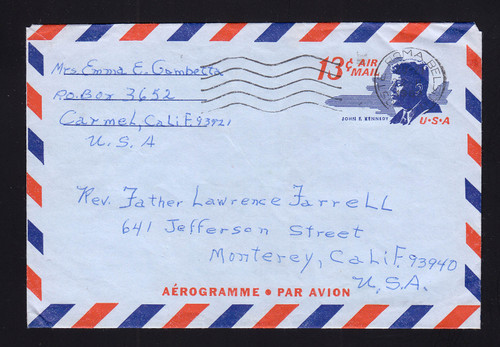 Mrs. Emma E. Gambetta
P.O. Box 3652
Carmel, Calif. 93921
U.S.A
13¢ AIR
MAIL
JOHN F. KENNEDY
U·S·A
Rev. Father Lawrence Farrell
641 Jefferson Street
Monterey, Calif. 93940
U.S.A.
AÉROGRAMME • PAR AVION